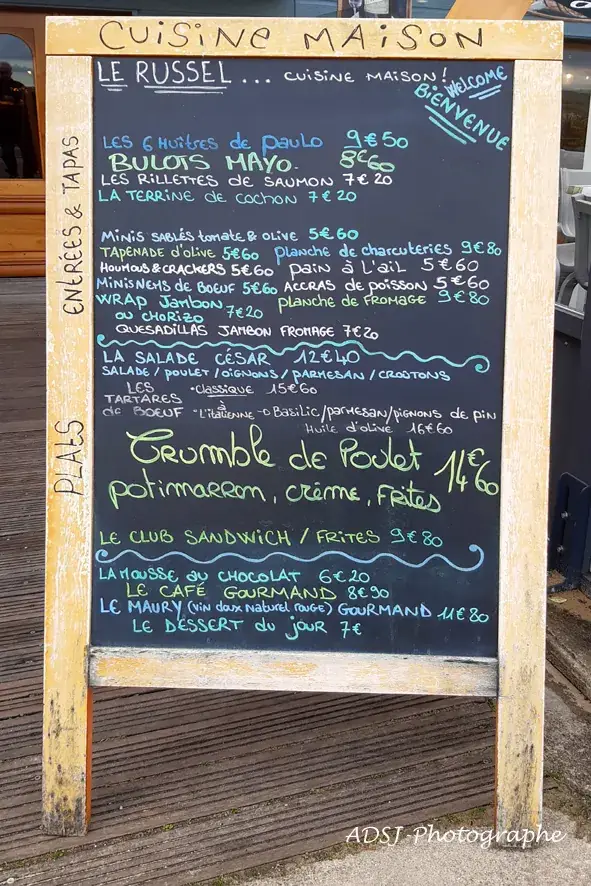 CUISINE MAISON
LE RUSSEL... CUISINE MAISON!
WELCOME
BIENVENUE
ENTRÉES & TAPAS
LES 6 HUITRES de PAULO 9€50
BULOTS MAYO. 8€60
LES RILLETTES DE SAUMON 7€20
LA TERRINE DE COCHON 7€20
MINIS SABLÉS tomate & OLIVE 5€60
TAPENADE d'OLIVE 5€60 PLANCHE de CHARCUTERIES 9€80
HOUMOUS & CRACKERS 5€60 PAIN à L'AIL 5€60
MINIS NEMS de BOEUF 5€60 ACCRAS de POISSON 5€60
WRAP JAMBON PLANCHE de FROMAGE 9€80
OU CHORIZO 7€20
QUESADILLAS JAMBON FROMAGE 7€20
PLATS
LA SALADE CÉSAR 12€40
SALADE / POULET / OIGNONS / PARMESAN / CROUTONS
LES TARTARES de BOEUF
• CLASSIQUE 15€60
• "L'ITALIENNE → Basilic/parmesan/pignons de pin
Huile d'olive 16€60
Crumble de Poulet 14€60
potimarron, crème, frites
LE CLUB SANDWICH / FRITES 9€80
LA MOUSSE AU CHOCOLAT 6€20
LE CAFÉ GOURMAND 8€90
LE MAURY (vin doux naturel rouge) GOURMAND 11€80
LE DESSERT du JOUR 7€
ADSJ-Photographe